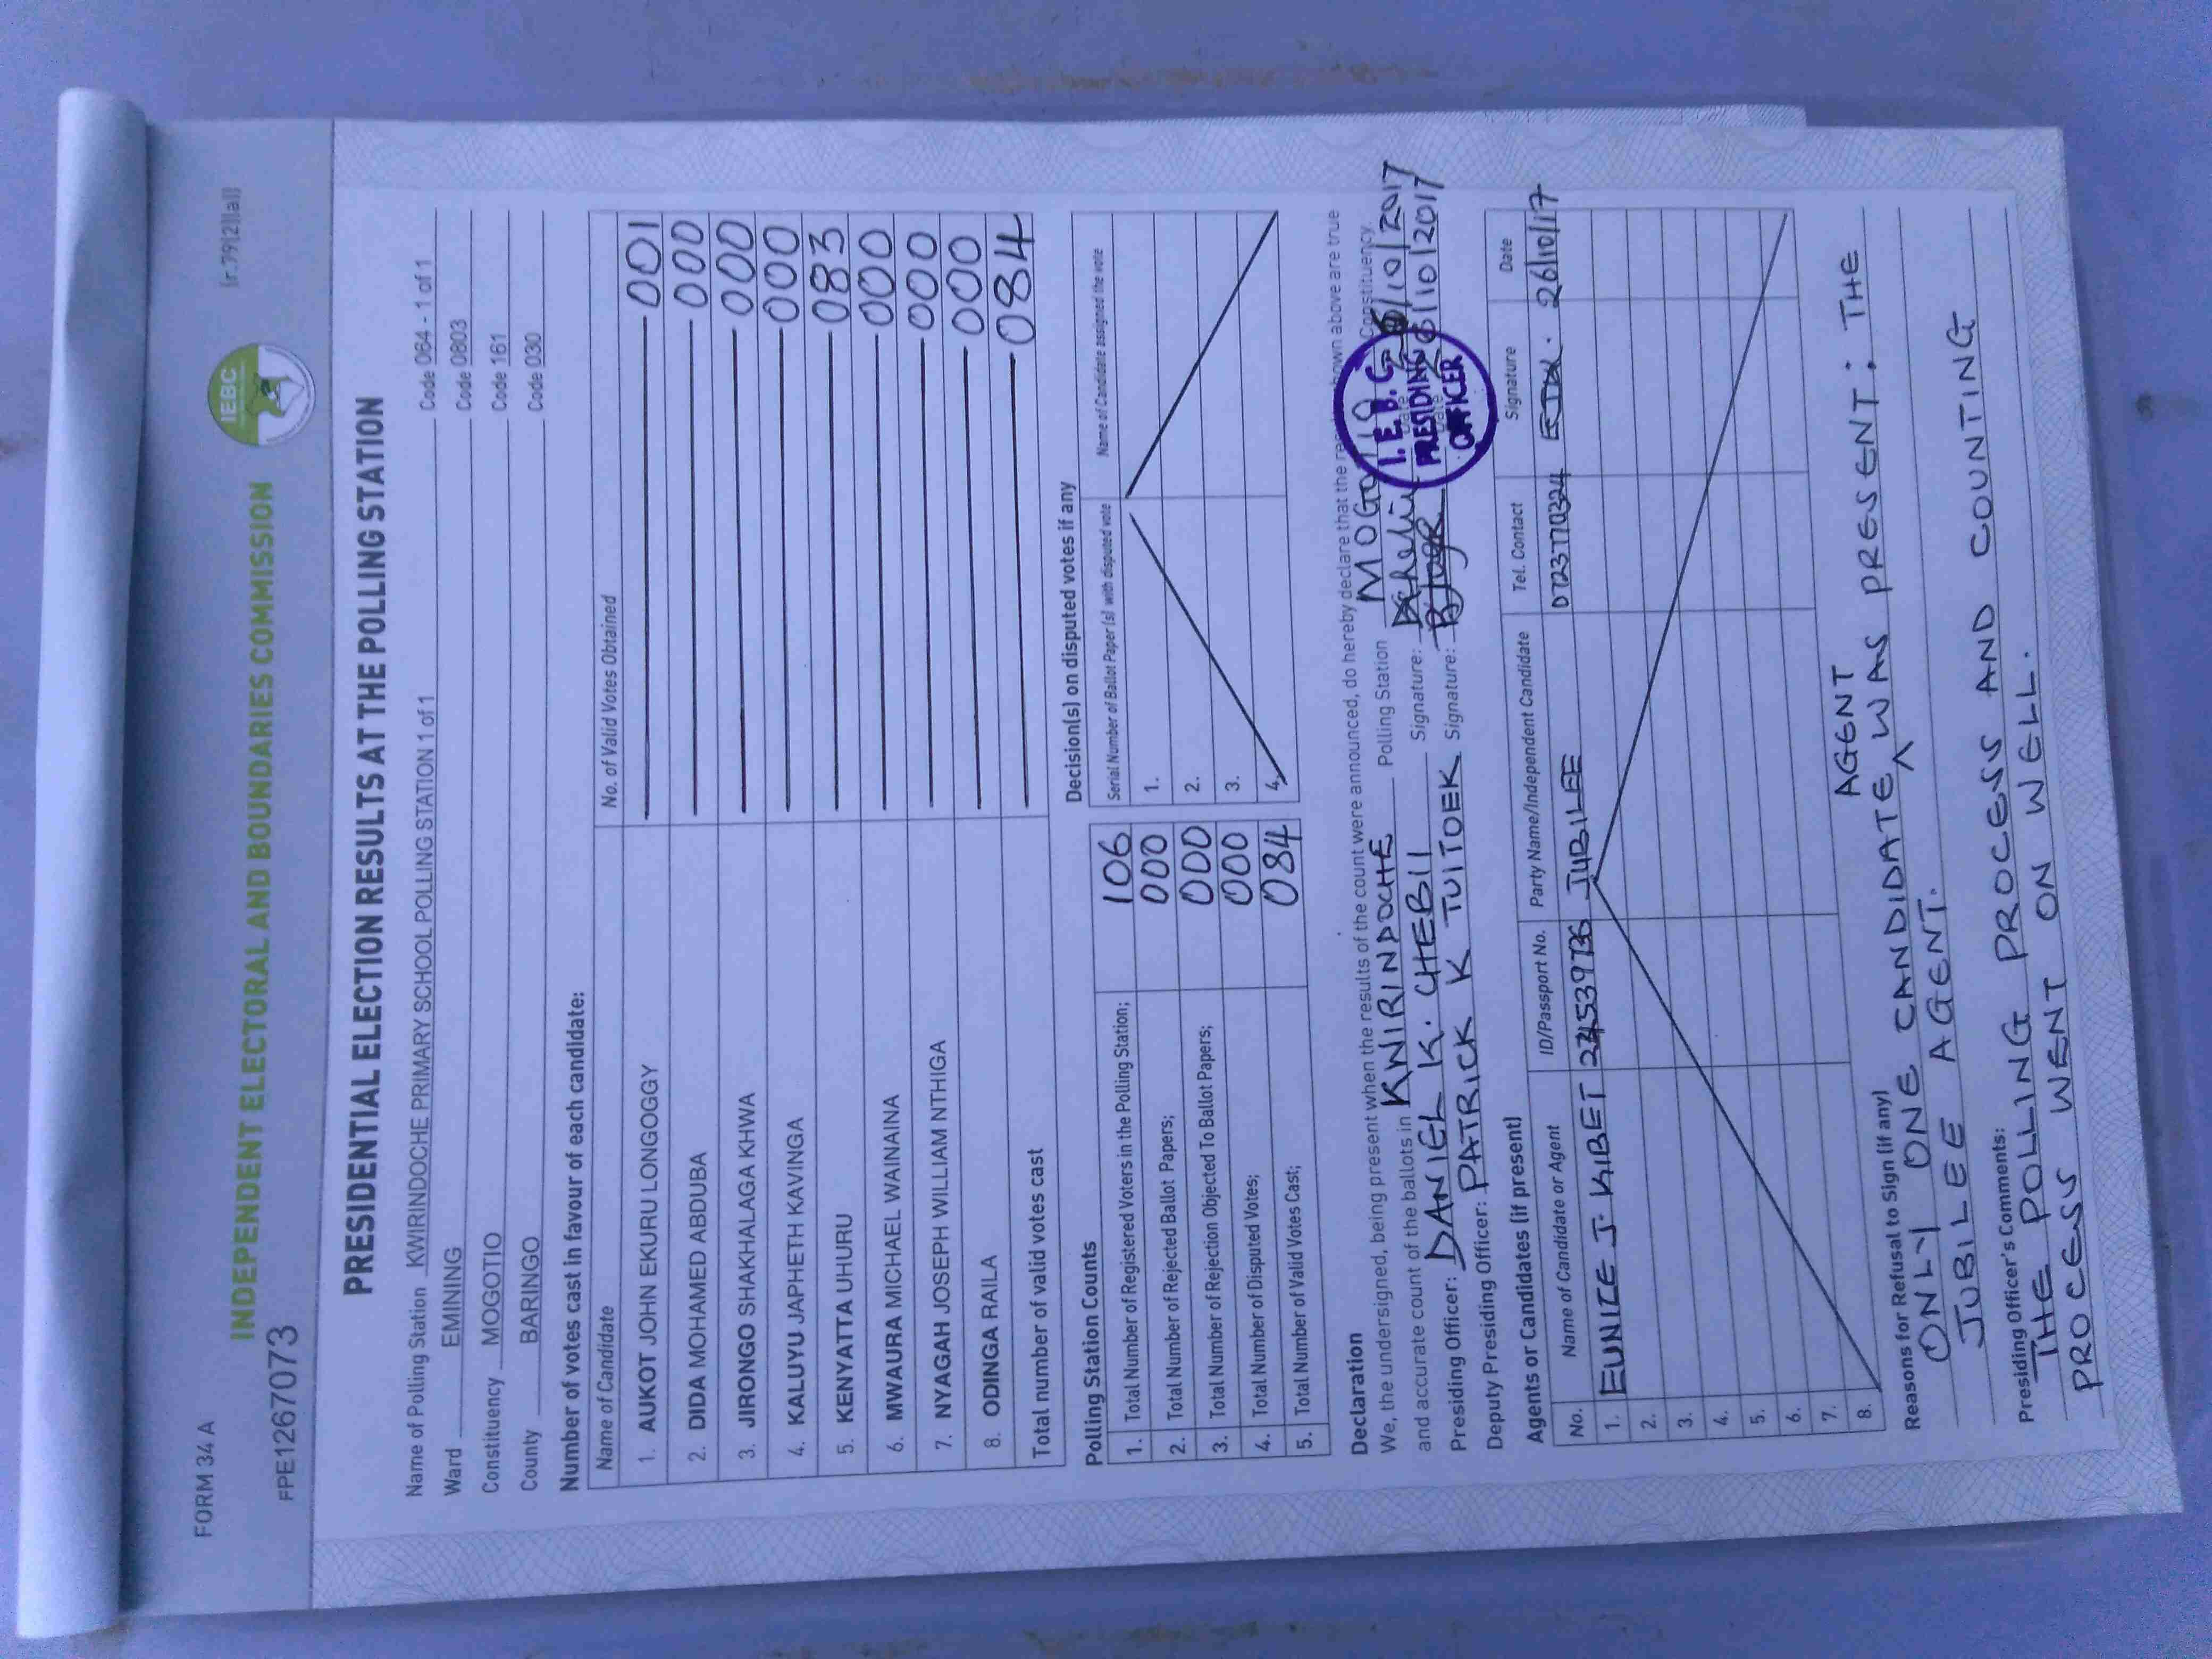 FORM 34 A
[r.79(2)(a)]
IEBC
INDEPENDENT ELECTORAL AND BOUNDARIES COMMISSION
FPE1267073
PRESIDENTIAL ELECTION RESULTS AT THE POLLING STATION
Name of Polling Station KWIRINDOCHE PRIMARY SCHOOL POLLING STATION 1 of 1 Code 064 - 1 of 1
Ward EMINING Code 0803
Constituency MOGOTIO Code 161
County BARINGO Code 030
Number of votes cast in favour of each candidate:
Name of Candidate No. of Valid Votes Obtained
1. AUKOT JOHN EKURU LONGOGGY 001
2. DIDA MOHAMED ABDUBA 000
3. JIRONGO SHAKHALAGA KHWA 000
4. KALUYU JAPHETH KAVINGA 000
5. KENYATTA UHURU 083
6. MWAURA MICHAEL WAINAINA 000
7. NYAGAH JOSEPH WILLIAM NTHIGA 000
8. ODINGA RAILA 000
Total number of valid votes cast 084
Polling Station Counts
1. Total Number of Registered Voters in the Polling Station; 106
2. Total Number of Rejected Ballot Papers; 000
3. Total Number of Rejection Objected To Ballot Papers; 000
4. Total Number of Disputed Votes; 000
5. Total Number of Valid Votes Cast; 084
Decision(s) on disputed votes if any
Serial Number of Ballot Paper (s) with disputed vote Name of Candidate assigned the vote
1.
2.
3.
4.
Declaration
We, the undersigned, being present when the results of the count were announced, do hereby declare that the shown above are true
and accurate count of the ballots in KWIRINDOCHE Polling Station Constituency.
Presiding Officer: DANIEL K. CHEBII Signature: /10/2017
Deputy Presiding Officer: PATRICK K TUITOEK Signature: /10/2017
I.E.B.C
PRESIDING
OFFICER
Agents or Candidates (if present)
No. Name of Candidate or Agent ID/Passport No. Party Name/Independent Candidate Tel. Contact Signature Date
1. EUNICE J. KIBET JUBILEE 0723770324 26/10/17
2.
3.
4.
5.
6.
7.
8.
Reasons for Refusal to Sign (if any)
AGENT
ONLY ONE CANDIDATE ^ WAS PRESENT: THE
JUBILEE AGENT.
Presiding Officer's Comments:
THE POLLING PROCESS AND COUNTING
PROCESS WENT ON WELL.